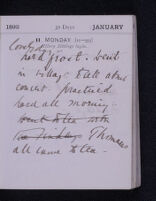 1892 31 Days JANUARY
11 MONDAY [11-355]
Hilary Sittings begin.
hard frost. Went
in village & talk about
concert. practised
hard all morning.
Went to tea with
Thomases
all came to tea.